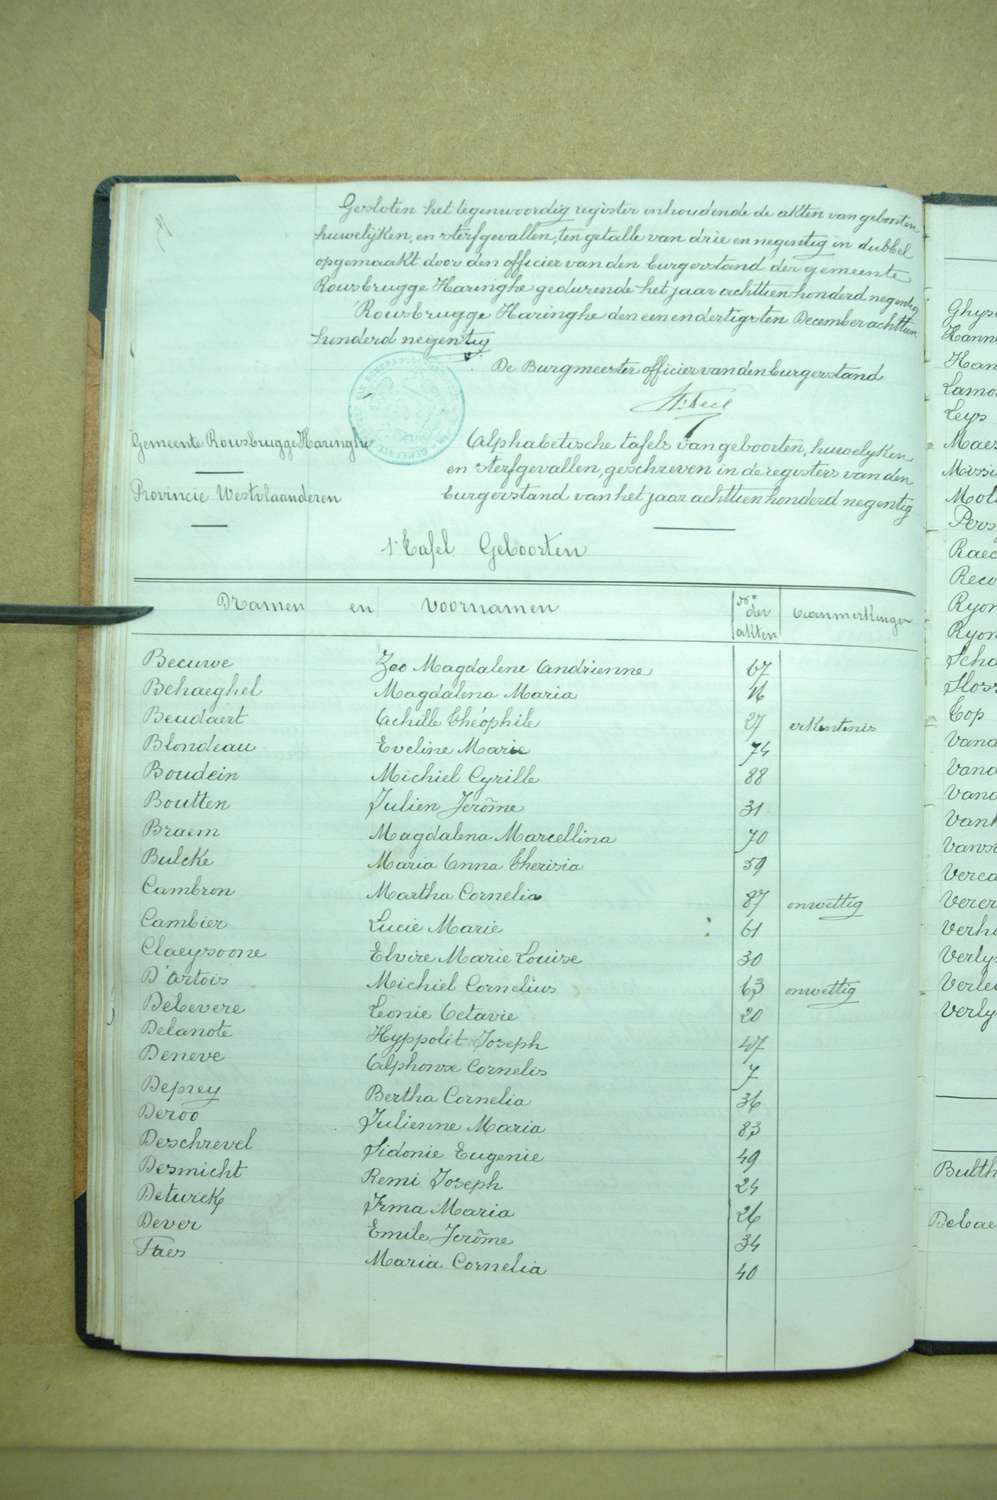 Gesloten het tegenwoordig register inhoudende de akten van geboorten
huwelijken, en sterfgevallen, ten getalle van drie en negentig in dubbel
opgemaakt door den officier van den burgerstand der gemeente
Rousbrugge Haringhe gedurende het jaar achttien honderd negentig
Rousbrugge Haringhe den een en dertigsten December achttien
honderd negentig
De Burgmeester officier van den burgerstand
Gemeente Rousbrugge Haringhe
Provincie Westvlaanderen
Alphabetische tafels van geboorten, huwelyken
en sterfgevallen, geschreven in de registers van den
burgerstand van het jaar achttien honderd negentig
1e Tafel Geboorten
Namen en Voornamen Nos der akten Aanmerkingen
Becuwe Zoe Magdalene Andrienne 67
Behaeghel Magdalena Maria 16
Beudaert Achille Théophile 27 erkentenis
Blondeau Eveline Marie 74
Boudein Michiel Cyrille 88
Boutten Julien Jerôme 31
Braem Magdalena Marcellina 70
Bulcke Maria Anna Therisia 59
Cambron Martha Cornelia 87 onwettig
Cambier Lucie Marie 61
Claeysoone Elvire Marie Louise 30
D'Artois Michiel Cornelius 63 onwettig
DeCevere Leonie Octavie 20
Delanote Hyppolit Joseph 47
Deneve Alphonse Cornelis 7
Deprey Bertha Cornelia 36
Deroo Julienne Maria 83
Deschrevel Sidonie Eugenie 49
Desmicht Remi Joseph 24
Deturck Irma Maria 26
Dever Emile Jerôme 34
Faes Maria Cornelia 40
Ghys
Hanne
Han
Lamo
Leys
Maes
Missi
Mol
Pers
Raec
Reco
Ryon
Ryon
Scha
Top
Vand
Vand
Vand
Vanh
Vans
Verca
Verer
Verh
Verly
Verle
Verly
Bulth